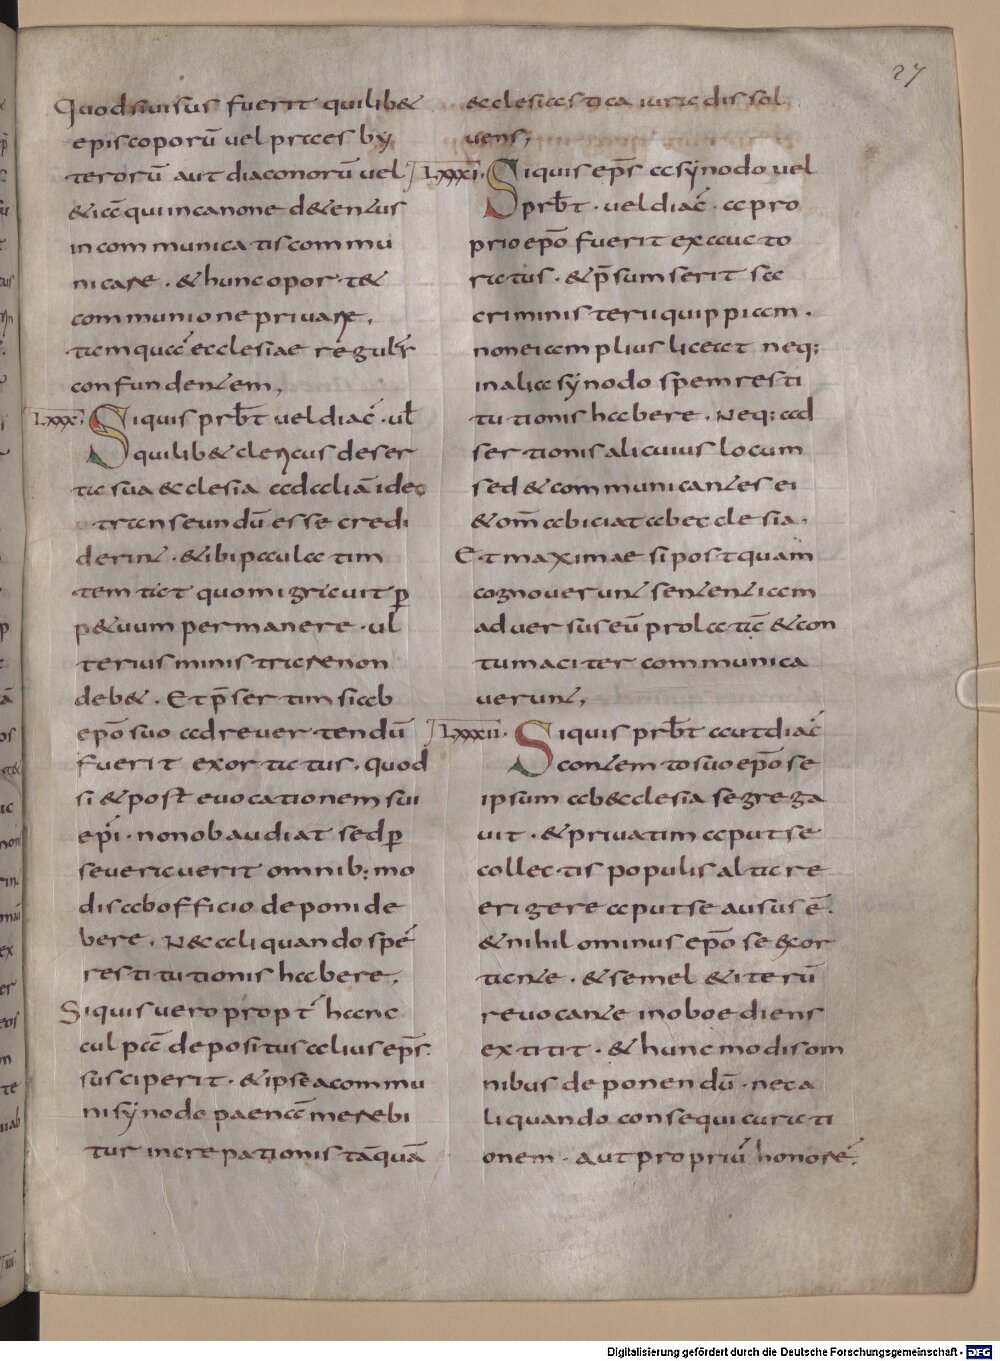 27
Quodsiuisus fuerit quilib&
episcoporū uel praesby
terorū aut diaconorū uel
&iā quiincanone d&entus
incommunicatis commu
nicare · & hunc opor t&
communione priuare,
tamquā ecclesiae regulā
confundentem,
LXXX· Siquis prbt uel diac̄ · ul
quilib& clericus deser
ta sua &clesia ad aliā ideo
transeundū esse credi
derint · & ibi paulatim
temtat quo migrauit p
p&uum permanere · ul
terius ministrare non
deb& · Et p̄sertim si ab
ep̄o suo ad reuertendū
fuerit exortatus · quod
si & post euocationem sui
epi · non obaudiat sed p
seuerauerit omnib; mo
dis ab officio deponi de
bere · N& aliquando spē
restitutionis habere,
Siquis uero propt hanc
culpā depositus alius ep̄s
susciperit · & ipse a commu
ni synodo paenā merebi
tur increpationis tāquā
&clesiastica iura dissol
uens,
LXXXI· Siquis ep̄s a synodo uel
prbt · uel diac̄ · a pro
prio ep̄o fuerit exaucto
ratus · & p̄sumserit sa
criministerii quippiam ·
non ei amplius liceat neq;
in alia synodo spem resti
tutionis habere · Neq; ad
sertionis alicuius locum
sed & communicantes ei
& om̄ abiciat ab ecclesia ·
Et maximae si postquam
cognouerunt sententiam
aduersus eū prolatā & con
tumaciter communica
uerunt,
LXXXII· Siquis prbt aut diac̄
contemto suo ep̄o se
ipsum ab &clesia segrega
uit · & priuatim aput se
collectis populis altare
erigere aput se ausus ē·
& nihilominus ep̄o se exor
tante · & semel & iterū
reuocante inoboediens
extitit · & hunc modis om
nibus deponendū · nec a
liquando consequi curati
onem · aut propriū honorē·
Digitalisierung gefördert durch die Deutsche Forschungsgemeinschaft - DFG